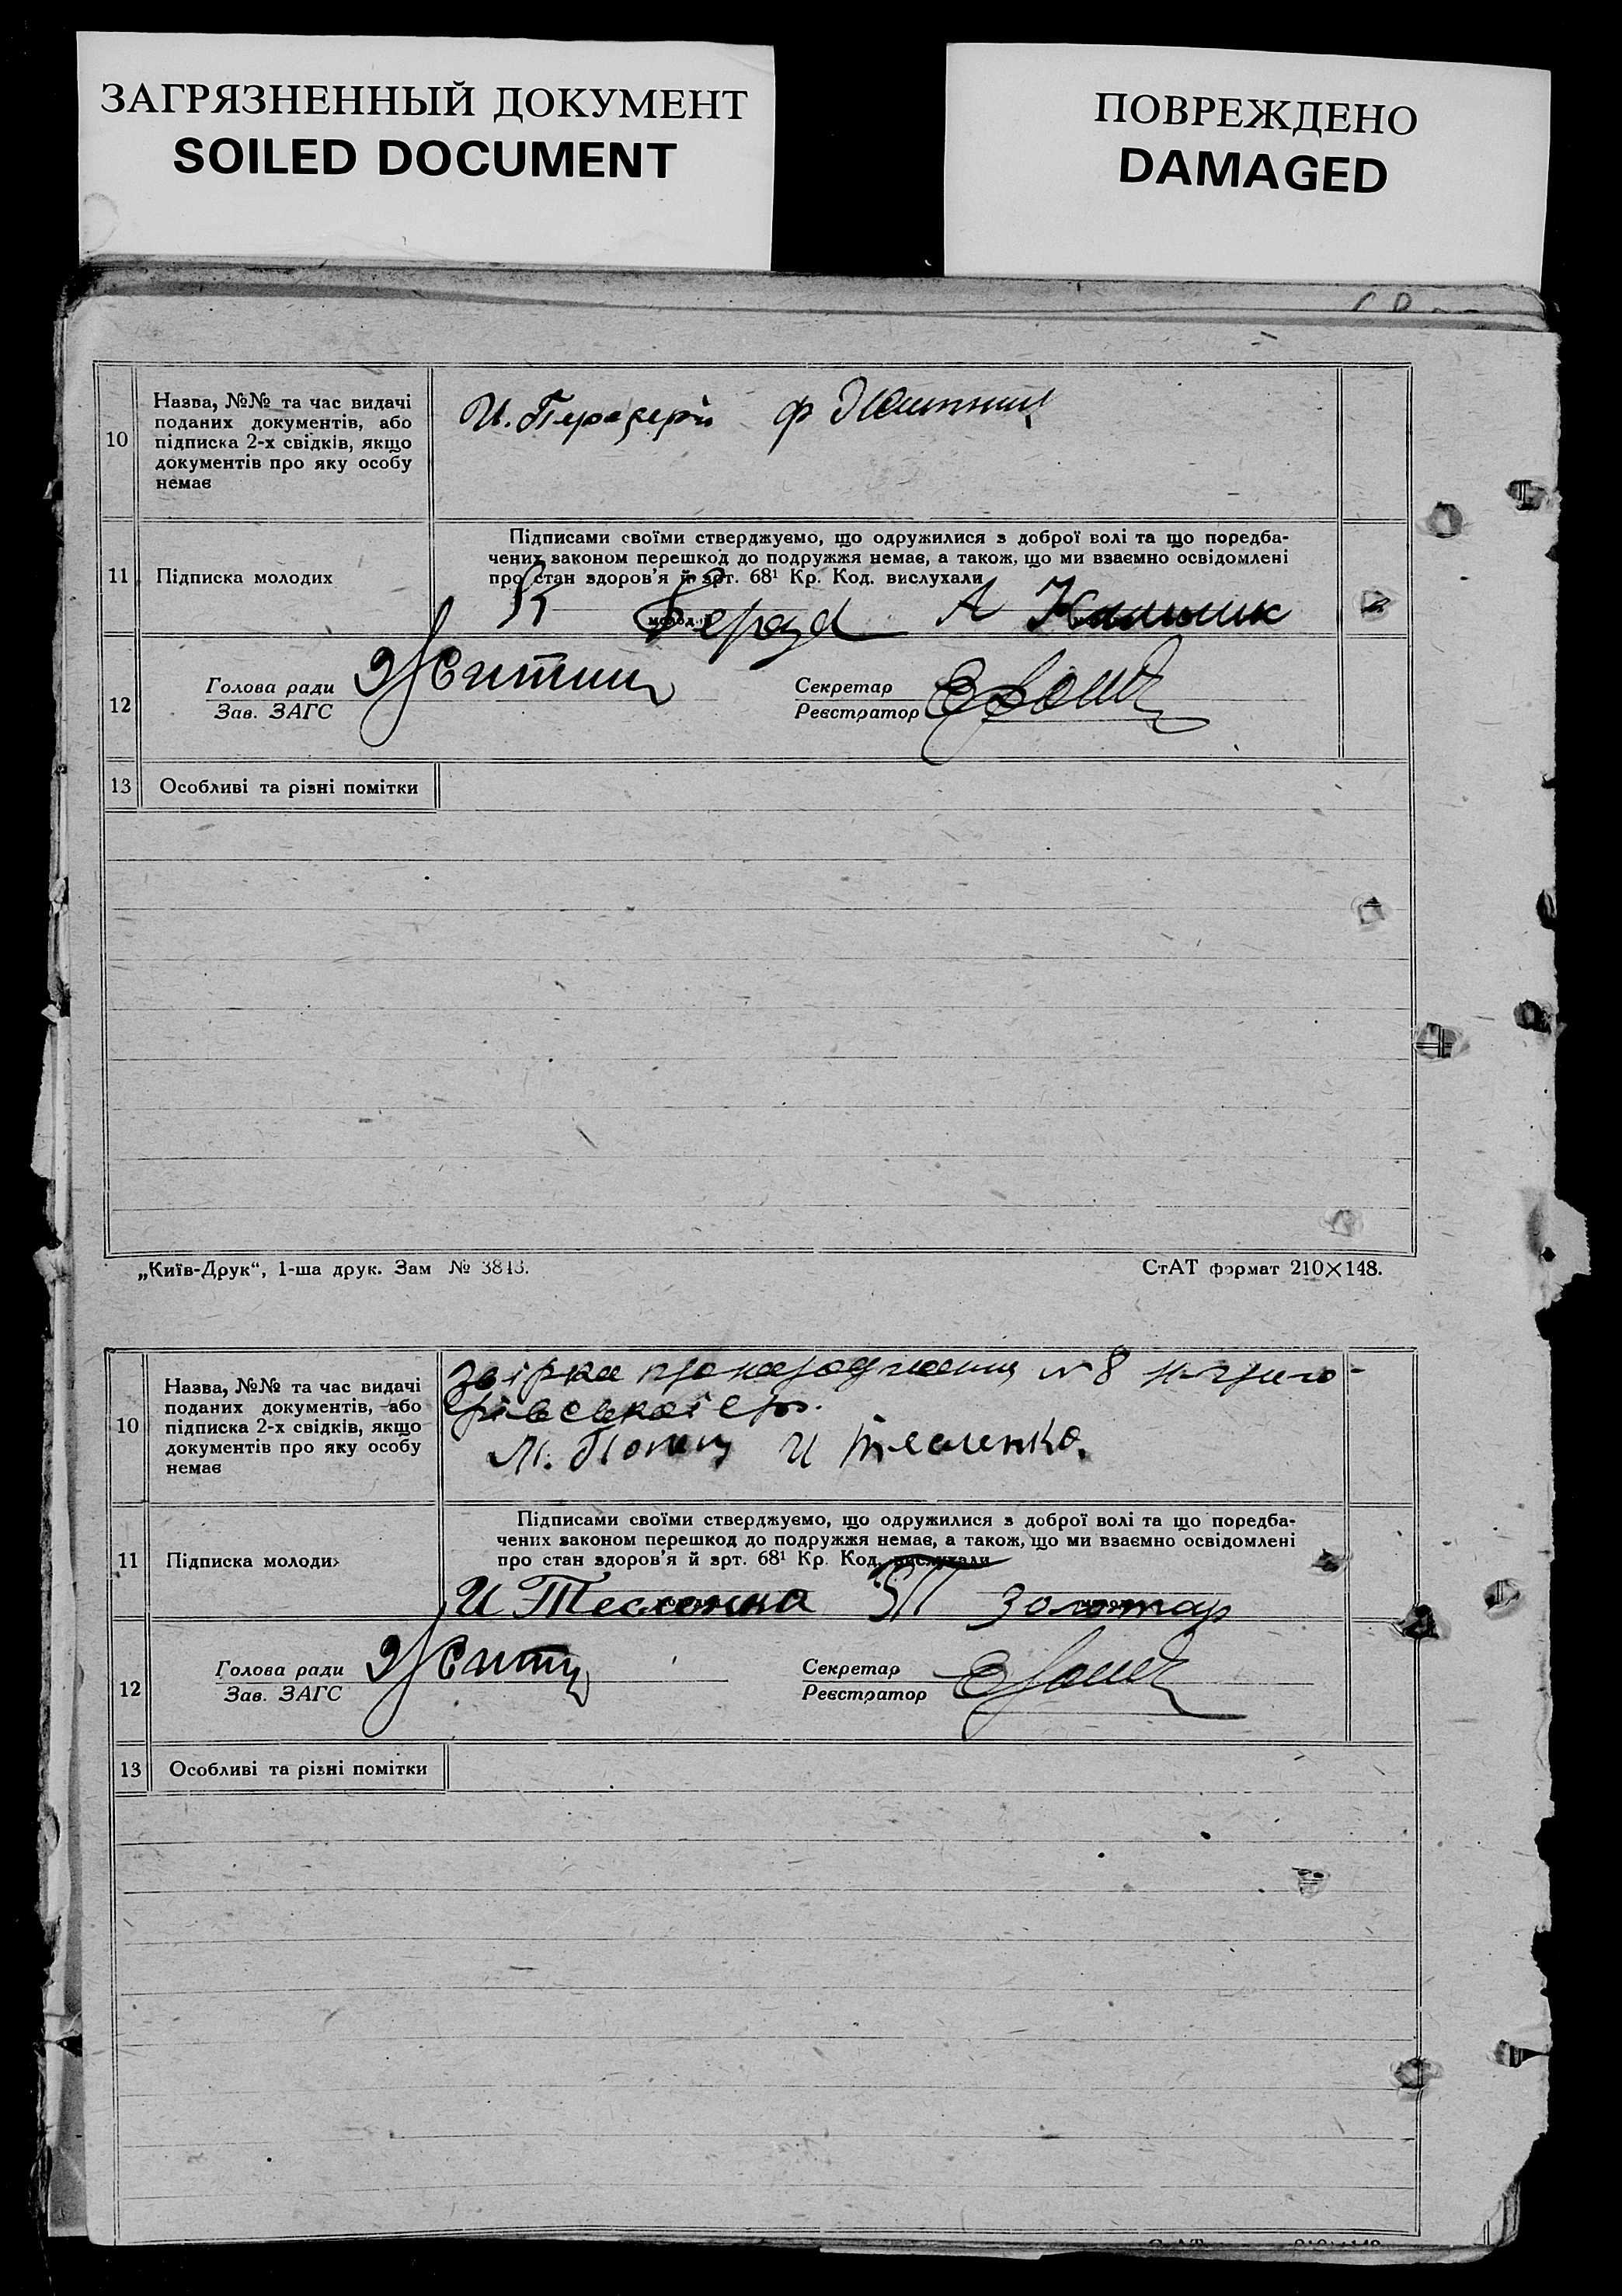 ЗАГРЯЗНЕННЫЙ ДОКУМЕНТ
SOILED DOCUMENT
ПОВРЕЖДЕНО
DAMAGED
10
Назва, №№ та час видачі
поданих документів, або
підписка 2-х свідків, якщо
документів про яку особу
немає
И.
ф
11
Підписка молодих
Підписами своїми стверджуємо, що одружилися з доброї волі та що поредба-
чених законом перешкод до подружжя немає, а також, що ми взаємно освідомлені
про стан здоров'я й зрт. 68¹ Кр. Код. вислухали
А
12
Голова ради
Зав. ЗАГС
Секретар
Реєстратор
13
Особливі та різні помітки
„Київ-Друк“, 1-ша друк. Зам № 3843.
СтАТ формат 210×148.
10
Назва, №№ та час видачі
поданих документів, або
підписка 2-х свідків, якщо
документів про яку особу
немає
№ 8
М. И Тесленко.
11
Підписка молодих
Підписами своїми стверджуємо, що одружилися з доброї волі та що поредба-
чених законом перешкод до подружжя немає, а також, що ми взаємно освідомлені
про стан здоров'я й зрт. 68¹ Кр. Код. вислухали
И Тесленко Золотар
12
Голова ради
Зав. ЗАГС
Секретар
Реєстратор
13
Особливі та різні помітки